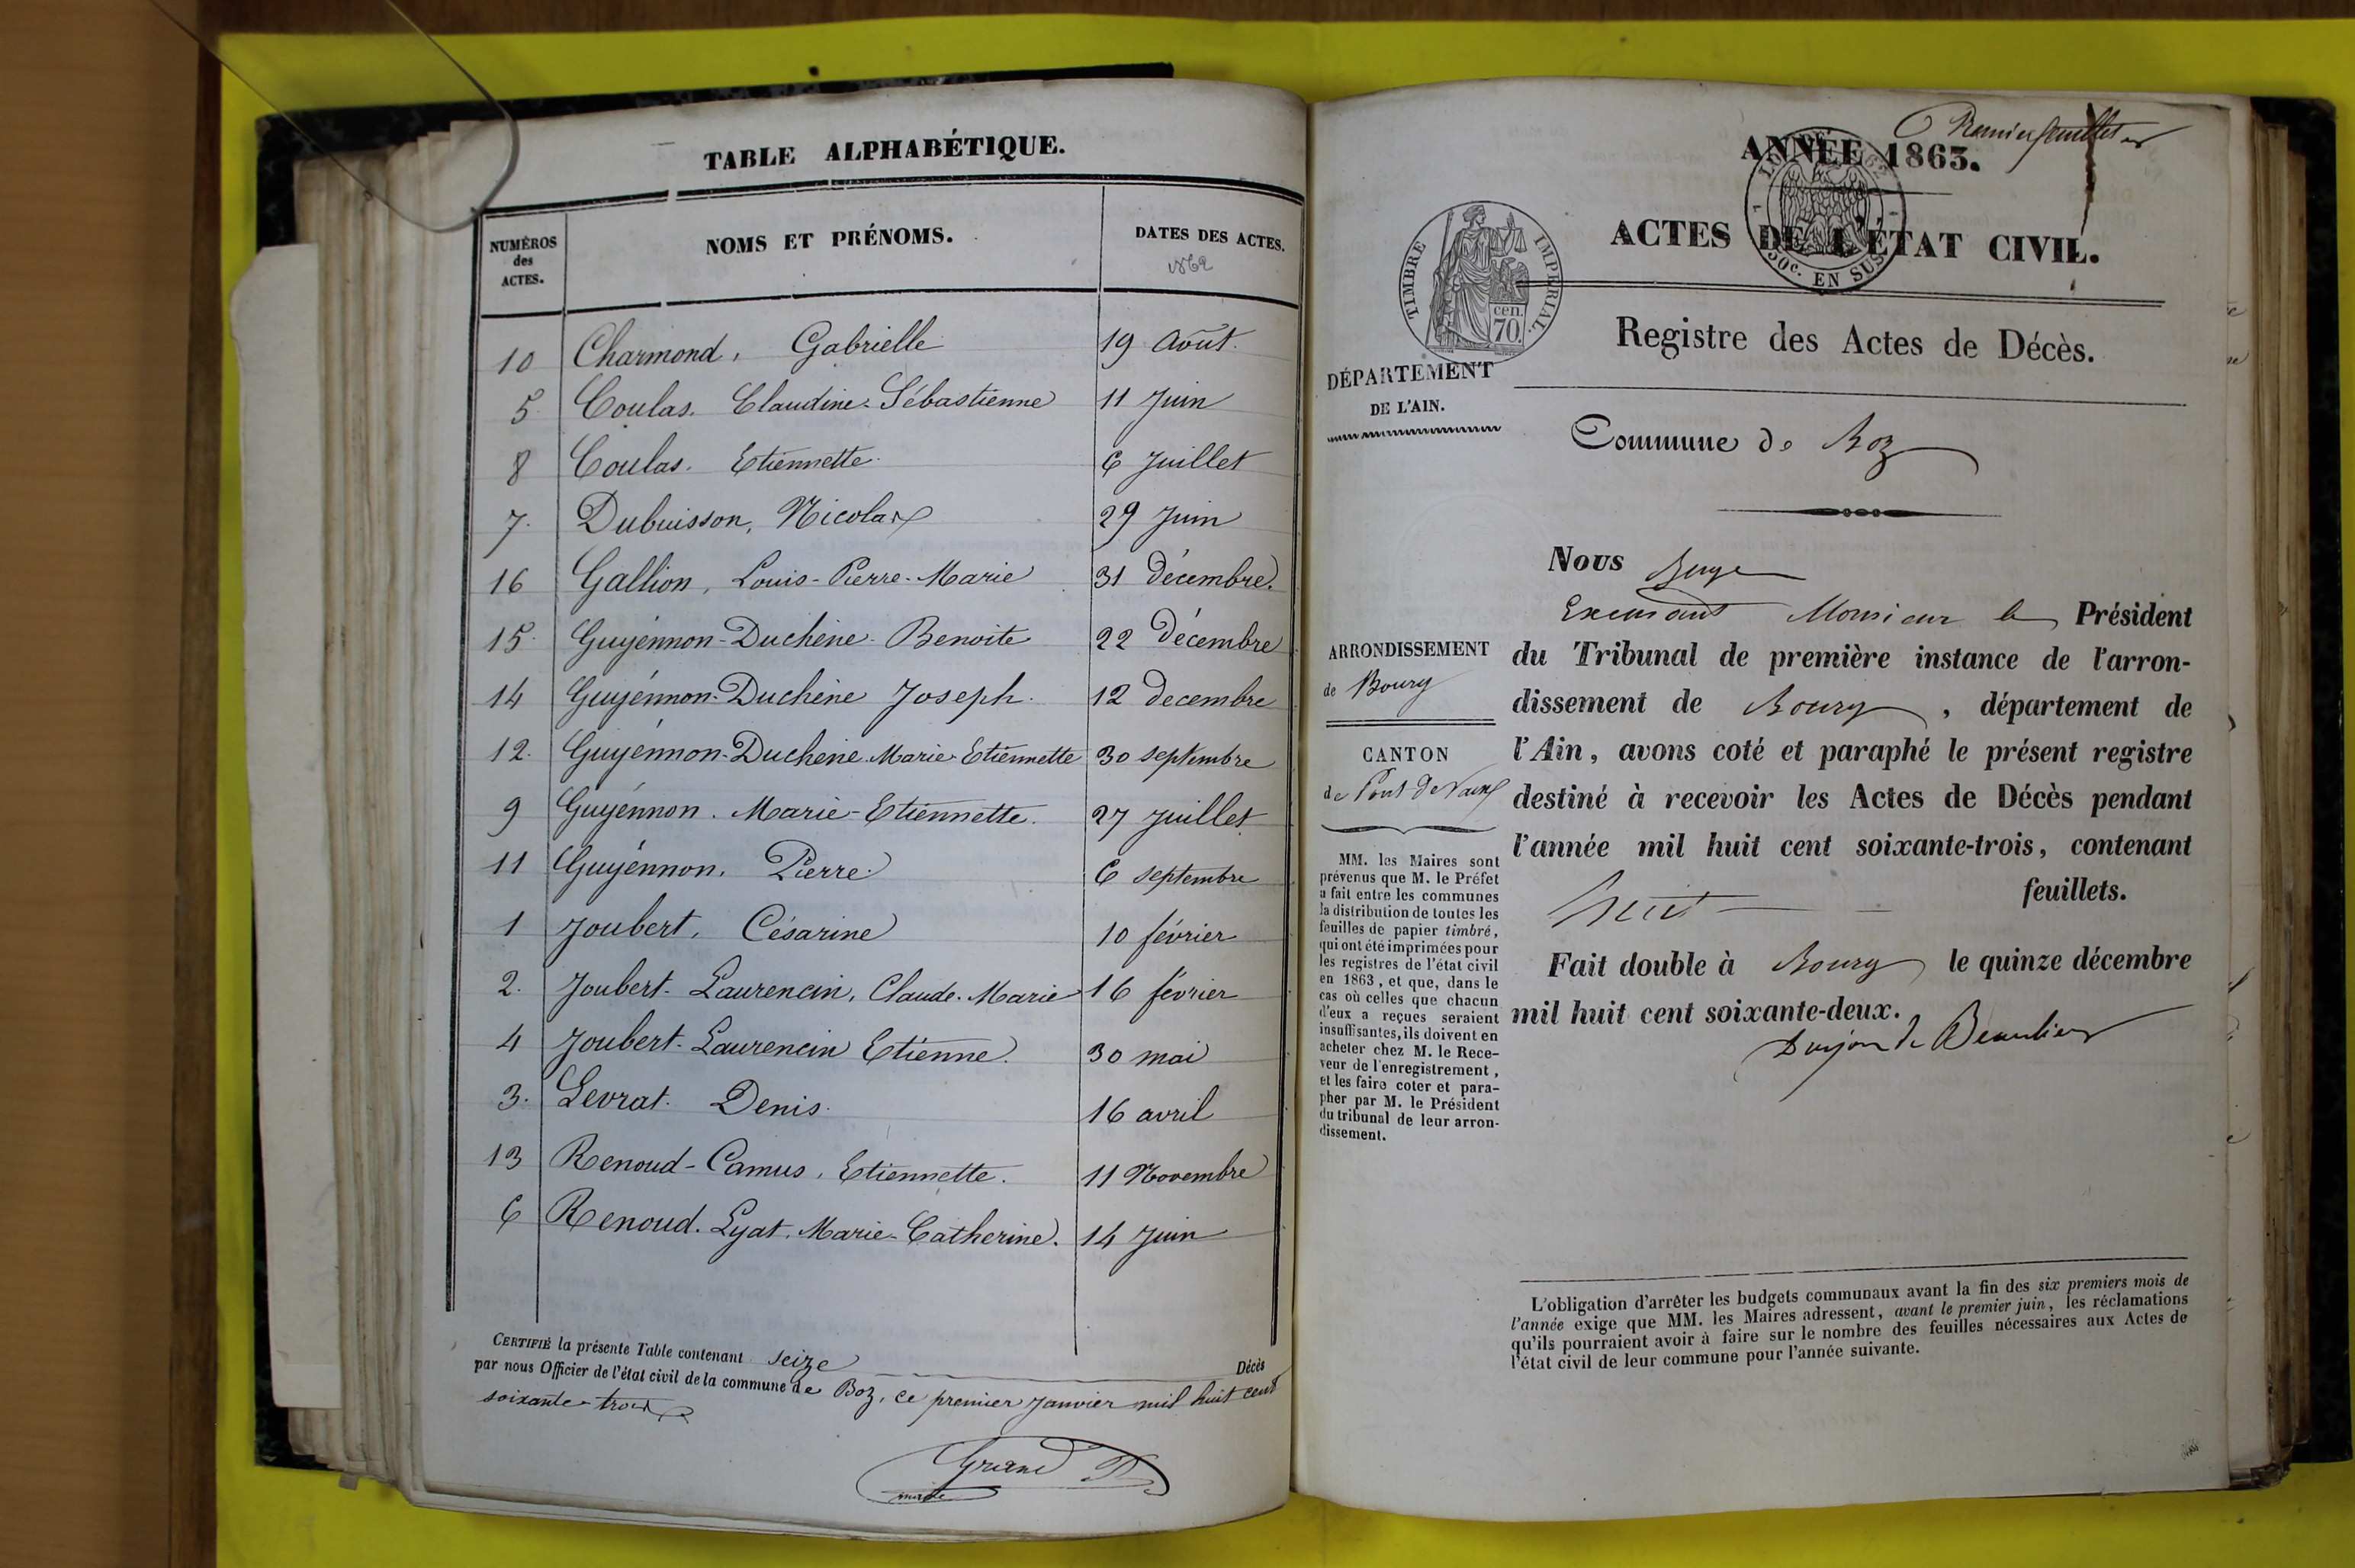 TABLE ALPHABÉTIQUE.
NUMÉROS des ACTES. NOMS ET PRÉNOMS. DATES DES ACTES.
1862
10 Charmond, Gabrielle 19 Août.
5. Coulas. Claudine-Sébastienne 11 Juin
8 Coulas. Etiennette. 6 Juillet
7. Dubuisson, Nicolas 29 Juin
16 Gallion, Louis-Pierre-Marie 31 décembre.
15. Guyénnon-Duchêne Benoite 22 Décembre
14 Guyénnon-Duchêne Joseph. 12 decembre
12. Guyénnon-Duchêne Marie Etiennette 30 septembre
9 Guyénnon. Marie-Etiennette. 27 Juillet
11 Guyénnon. Pierre. 6 septembre
1 Joubert, Césarine 10 février
2. Joubert-Laurencin, Claude-Marie 16 février
4 Joubert-Laurencin Etienne. 30 mai
3. Levrat. Denis. 16 avril
13 Renoud-Camus, Etiennette. 11 Novembre
6 Renoud-Lyat, Marie-Catherine. 14 Juin
CERTIFIÉ la présente Table contenant seize Décès
par nous Officier de l'état civil de la commune de Boz, ce premier Janvier mil huit cent
soixante-trois
Grand
maire
Premier feuillet
ANNÉE 1863.
50c. EN SUS
TIMBRE IMPÉRIAL.
cen. 70.
ACTES DE L'ÉTAT CIVIL.
Registre des Actes de Décès.
DÉPARTEMENT
DE L'AIN.
Commune de Boz
Nous
Monsieur le Président
ARRONDISSEMENT
de Bourg
du Tribunal de première instance de l'arron-
dissement de Bourg, département de
CANTON
de Pont de Vaux
l'Ain, avons coté et paraphé le présent registre
destiné à recevoir les Actes de Décès pendant
l'année mil huit cent soixante-trois, contenant
huit feuillets.
Fait double à Bourg le quinze décembre
mil huit cent soixante-deux.
MM. les Maires sont
prévenus que M. le Préfet
a fait entre les communes
la distribution de toutes les
feuilles de papier timbré,
qui ont été imprimées pour
les registres de l'état civil
en 1863, et que, dans le
cas où celles que chacun
d'eux a reçues seraient
insuffisantes, ils doivent en
acheter chez M. le Rece-
veur de l'enregistrement,
et les faire coter et para-
pher par M. le Président
du tribunal de leur arron-
dissement.
L'obligation d'arrêter les budgets communaux avant la fin des six premiers mois de
l'année exige que MM. les Maires adressent, avant le premier juin, les réclamations
qu'ils pourraient avoir à faire sur le nombre des feuilles nécessaires aux Actes de
l'état civil de leur commune pour l'année suivante.